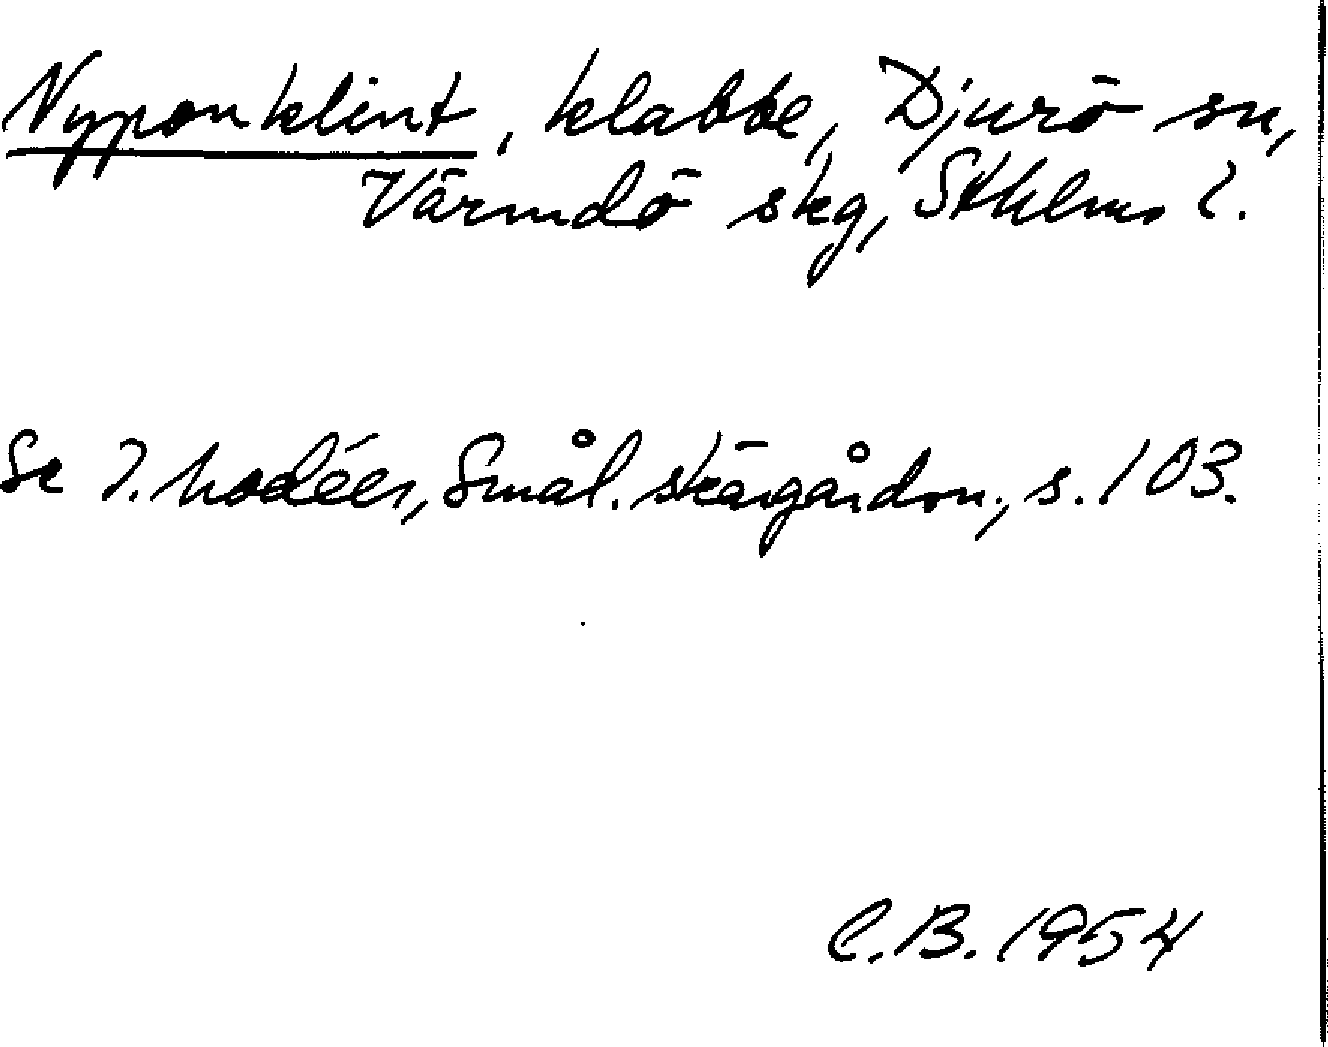 Nyponklint, klabbe, Djurö sn,
Värmdö skg, Sthlms l.
Se I. Modéer, Smål. skärgårdsn., s. 103.
C.B. 1954